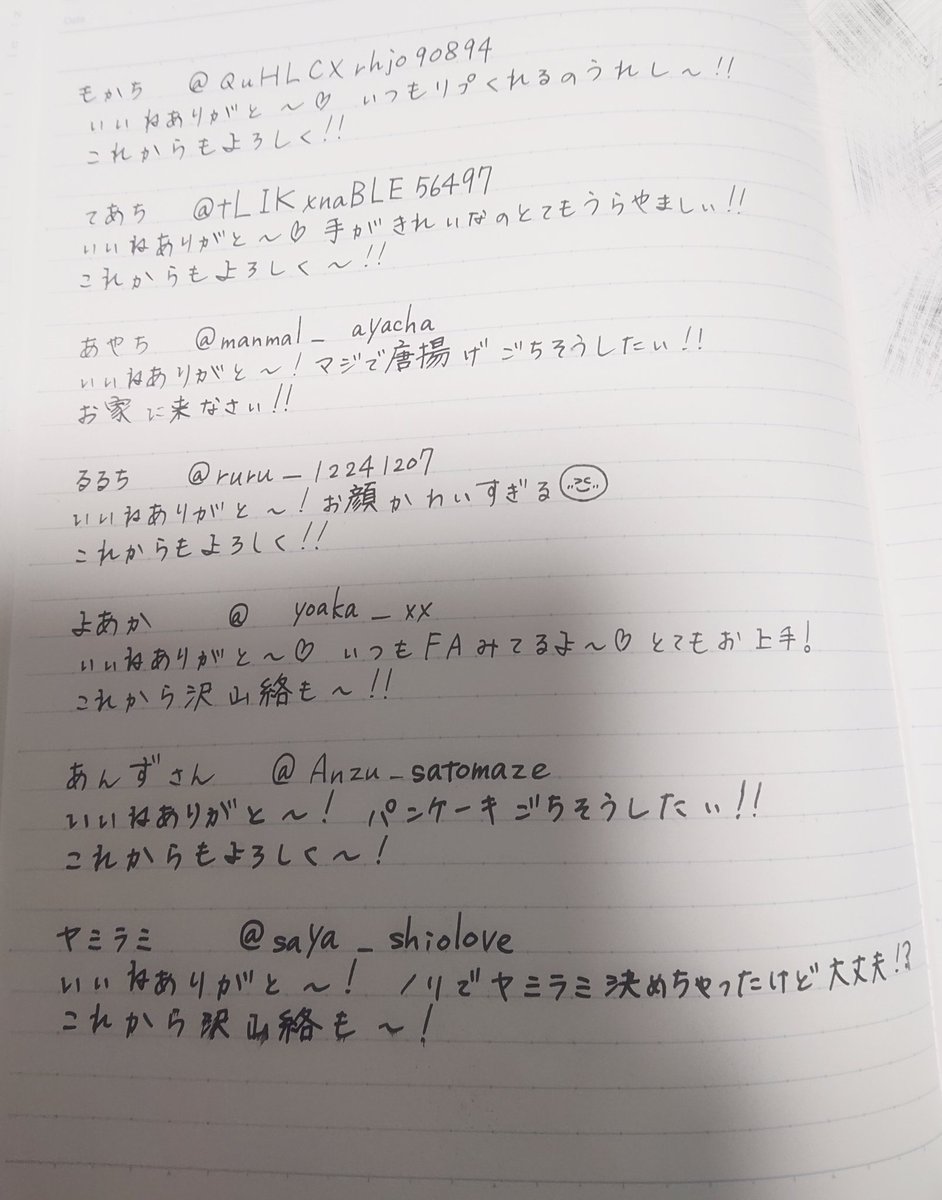 もかち @QuHLCXrhjo90894
いいねありがと〜♡ いつもリプくれるのうれし〜!!
これからもよろしく!!
てあち @tLIKxnaBLE56497
いいねありがと〜♡ 手がきれいなのとてもうらやましい!!
これからもよろしく〜!!
あやち @manmal_ayacha
いいねありがと〜! マジで唐揚げごちそうしたい!!
お家に来なさい!!
るるち @ruru_12241207
いいねありがと〜! お顔かわいすぎる
これからもよろしく!!
よあか @ yoaka_xx
いいねありがと〜♡ いつもFAみてるよ〜♡ とてもお上手!
これから沢山絡も〜!!
あんずさん @Anzu_satomaze
いいねありがと〜! パンケーキごちそうしたい!!
これからもよろしく〜!
ヤミラミ @saya_shiolove
いいねありがと〜! ノリでヤミラミ決めちゃったけど大丈夫!?
これから沢山絡も〜!